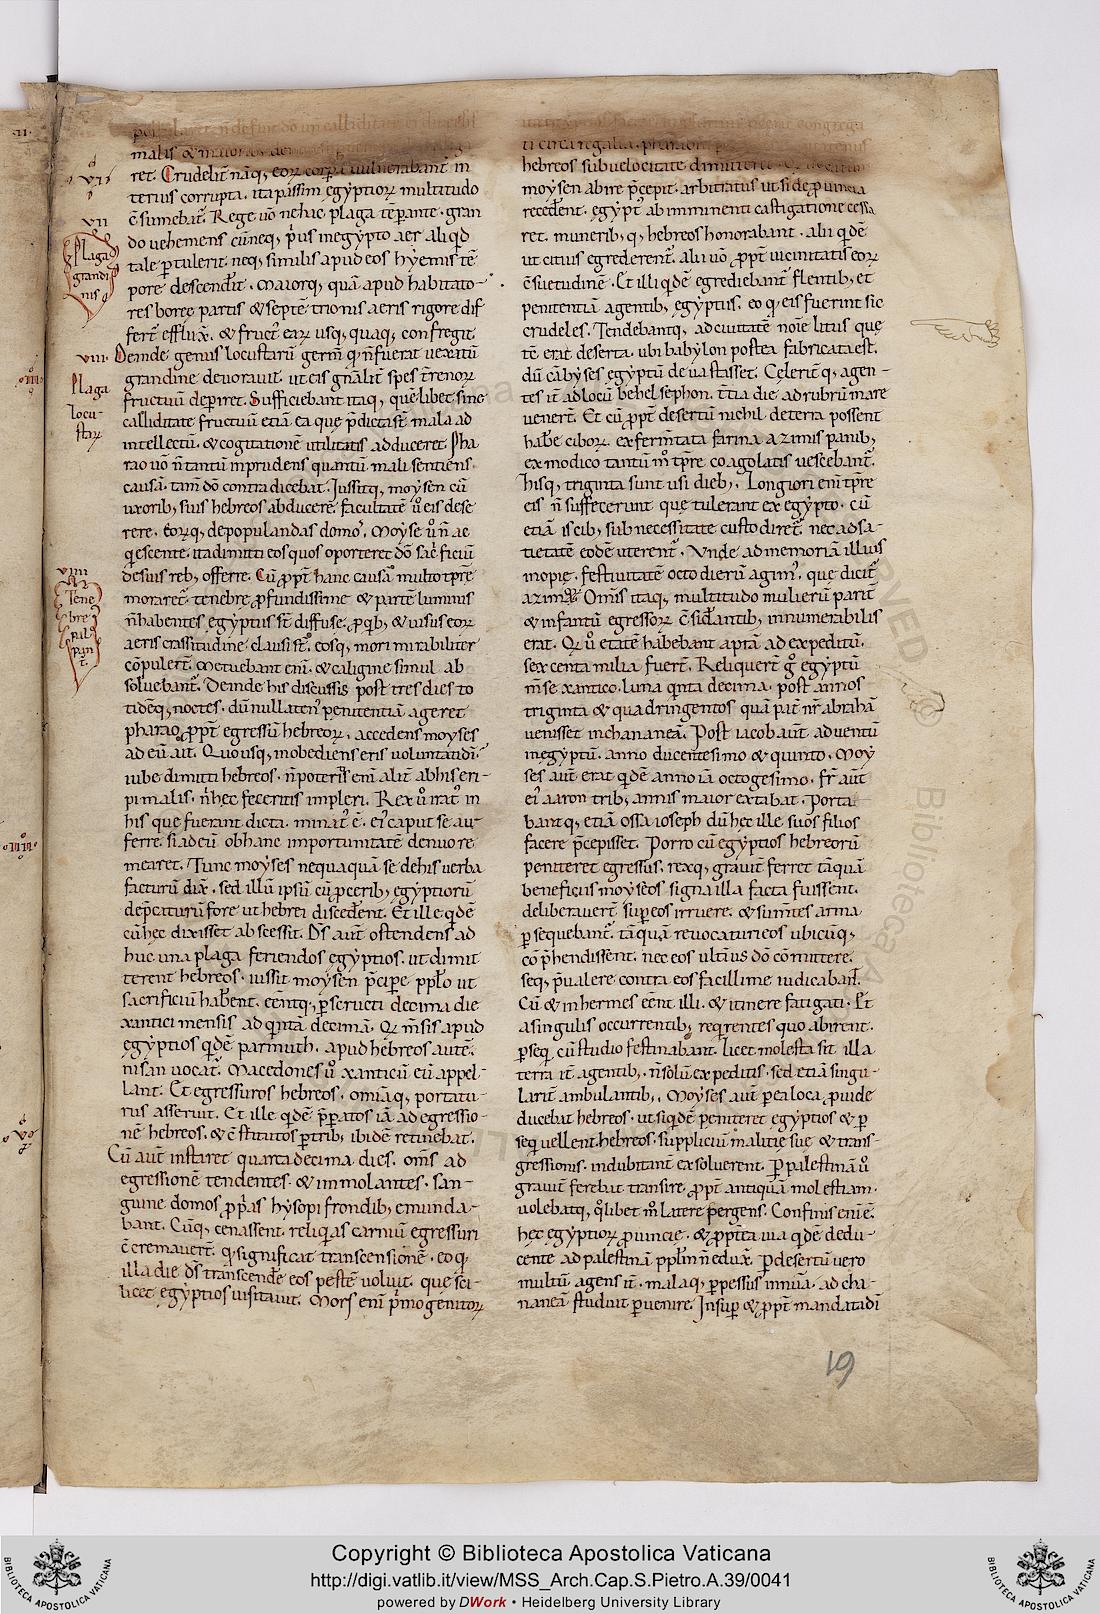 malis &
ret. Crudelit̄ nāq; eoꝝ corpora uulnerabant̄ in
terius corrupta. ita passim egyptioꝝ multitudo
c̄sumebat̄. Rege ūo ne hac plaga tēperante. gran
do uehemens cū neq; p̄us in egypto aer aliq̇d
tale ꝑtulerit. neq; similis apud eos hyemis tē
pore descenderit. maiorq; quā apud habitato-
res boreę partis & septētrionis aeris rigore dif
fert̄ effluxit. & fruct̄ earꝝ usq; quaq; confregit.
Deinde genus locustarū germē q̇ n̄ fuerat uexatū
grandine deuorauit. ut eis gn̄alit̄ spes t̄renoꝝ
fructuū deꝑiret. Sufficiebant itaq; quēlibet sine
calliditate fructuū etiā ea que p̄dicta st̄ mala ad
intellectū. & cogitationē utilitatis adducere. Pha
rao ūo n̄ tantū inprudens quantū mali sentiens
causā. tam̄ dō contradicebat. Iussitq; moysen cū
uxorib; suis hebreos abducere. facultatē ů eis dese
rere. eoꝝq; depopulandas domoˢ. Moyse ů n̄ ac
q̇escente. ita dimitti eos quos oporteret dō sac̄ficiū
de suis reb; offerre. Cū ꝓpt̄ hanc causā multo tp̄re
moraret̄. tenebre ꝓfundissime & partē luminis
n̄ habentes egyptus st̄ diffuse. ꝓ q̇b; & uisus eoꝝ
aeris crassitudine clausi st̄. eosq; mori mirabiliter
cōpulert̄. Metuebant eni. & caligine simul ab
soluebant̄. Deinde his discussis post tres dies to
tidēq; noctes. dū nullaten̄ penitentiā ageret
pharao ꝓpt̄ egressū hebreoꝝ. accedens moyses
ad eū ait. Quousq; inobediens eris uoluntati dī.
iube dimitti hebreos. n̄ poteritis eni alit̄ ab his eri-
pi malis. n̄ hec feceritis impleri. Rex ů irat̄ in
his que fuerant dicta. minat̄ ē. ei caput se au
ferre. si ad eū ob hanc importunitatē denuo re
mearet. Tunc moyses nequaquā se de his uerba
facturū dix̄. sed illū ipsū cū ꝓcerib; egyptiorū
dep̄caturū fore ut hebrei discederent. Et ille q̇dē
cū hęc dixisset abscessit. Dˢ aut̄ ostendens ad
huc una plaga feriendos egyptios. ut dimit
terent hebreos. iussit moysen p̄cipe pplo ut
sacrificiū haberent. c̄entq; ꝑstructi decima die
xantici mensis ad q̇ntā decimā. Q̇ mēsis apud
ęgyptios q̇dē parmuth. apud hebreos autē
nisan uocat̄. Macedones ů xanticū eū appel-
lant. Et egressuros hebreos. omīaq; portatu-
rus asseruit. Et ille q̇dē p̄paratos iā ad egressio-
nē hebreos. & c̄stitutos ꝑ trib; ibidē retinebat.
Cū aut̄ instaret quartadecima dies. oms̄ ad
egressionē tendentes. & immolantes. san-
guine domos ꝓprias hysopi frondib; emunda-
bant. Cūq; cenassent. reliq̇as carniū egressuri
c̄cremauert̄. q̇ significat transcensionē. eo q̇
illa die dˢ transcendere eos pestē uoluit. que sci-
licet ęgyptios uisitauit. Mors eni p̄mogenitoꝝ
hebreos sub uelocitate
moysen abire p̄cepit. arbitratus ut si de ꝓuincia
recederent. ęgyptus ab imminenti castigatione cessa
ret. munerib;q; hebreos honorabant. alii q̇dē
ut citius egrederent̄. alii ūo ꝓpt̄ uicinitatis eoꝝ
c̄suetudinē. Et illi q̇dē egrediebant̄ flentib; et
penitentiā agentib; ęgyptiis. eo q; eis fuerint sic
crudeles. Tendebantq; ad ciuitatē noīe litus que
tē erat deserta. ubi babylon postea fabricata est.
dū cābyses egyptū deuastasset. Celeriūq; agen-
tes it̄ ad locū behelsephon. t̄tia die ad rubrū mare
uenert̄. Et cū ꝓpt̄ desertū nichil deterra possent
habere ciboꝝ. ex fermtata farina azimis panib;
ex modico tantū m̊ tp̄re coagolatis uescebant̄.
Hisq; triginta sunt usi dieb;. Longiori eni tp̄re
eis n̄ suffecerunt que tulerant ex egypto. cū
etiā is cib; sub necessitate custodiret̄. nec ad sa-
tietatē eodē uterent̄. Vnde ad memoriā illius
inopię. festiuitatē octo dierū agimˢ. que dicit̄
azimoꝝ. Omīs itaq; multitudo mulierū parit̄
& infantū egressoꝝ c̄siderantib; innumerabilis
erat. Q̇ ů etatē habebant aptā ad expeditū.
sexcenta milia fuert̄. Reliquert̄ g̊ egyptū
mēse xantico. luna q̇nta decima. post annos
triginta & quadringentos quā pat̄ nr̄ abrahā
uenisset in chananeā. Post iacob aut̄ aduentū
in egyptū. anno ducentesimo & quinto. Moy
ses aut̄ erat q̇dē anno iā octogesimo. fr̄ aut̄
ei aaron trib; annis maior extabat. Porta-
bantq; etiā ossa ioseph dū hęc ille suos filios
facere p̄cepisset. Porro cū egyptios hebreorū
peniteret egressus. rexq; grauit̄ ferret tāquā
beneficiis moyseos signa illa facta fuissent.
deliberauert̄ suꝑ eos irruere. & sumtes arma
ꝑsequebant̄. tāquā reuocaturi eos ubicūq;
cōp̄hendissent. nec eos ultriˢ dō cōmittere.
seq; p̄ualere contra eos facillime iudicabant̄.
Cū & inhermes c̄ent illi. & itinere fatigati. Et
a singulis occurrentib; req̇rentes quo abirent.
ꝑseq̇ cū studio festinabant. licet molesta sit illa
terra it̄ agentib; n̄ solū expeditis. sed etiā singu-
larit̄ ambulantib;. Moyses aut̄ ꝑ ea loca ꝓuide
ducebat hebreos. ut si q̇dē peniteret egyptios & ꝑ
seq̇ uellent hebreos. suppliciū malitię suę & trans-
gressionis. indubitant̄ exsoluerent. Ꝑ palestinā ů
grauit̄ ferebat transire. ꝓpt̄ antiquā molestiam.
uolebatq; q̊libet m̊ latere pergens. Confinis eni ē.
hęc egyptioꝝ ꝓuincię. & ꝓpt̄ ita uia q̇dē dedu-
cente ad palestinā pplm̄ n̄ edux̄. Ꝑ desertū uero
multū agens it̄. malaq; ꝑpessus innūa. ad cha-
naneā studuit ꝑuenire. Insuꝑ & ꝓpt̄ mandata dī
VI
VII
Plaga
grandi
nis
VIII
Plaga
locu-
staꝝ
VIIII
Tene
bre
pal
pan
t̄.
19
Copyright © Biblioteca Apostolica Vaticana
http://digi.vatlib.it/view/MSS_Arch.Cap.S.Pietro.A.39/0041
powered by DWork • Heidelberg University Library
BIBLIOTECA APOSTOLICA VATICANA
BIBLIOTECA APOSTOLICA VATICANA